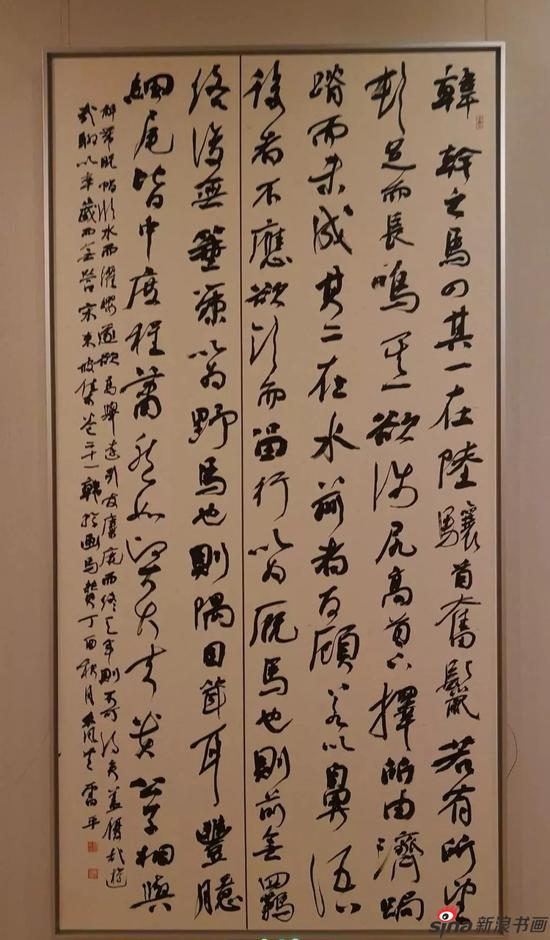 韓幹之馬四其一在陸驤首奮鬣若有所望
頓足而長鳴其一欲涉尻高首下擇所由濟跼
蹐而未成其二在水前者反顧若以鼻語
後者不應欲飲而留行以為厩馬也則前無羈
絡後無箠策以為野馬也則隅目聳耳豐臆
細尾皆中度程蕭然如賢大夫貴公子相與
解帶脫帽臨水而濯纓遂欲高舉遠引友麋鹿而終天年則不可得矣蓋優哉游
哉聊以卒歲而無營宋東坡集卷二十一韓幹畫馬贊丁酉秋月雷平
sina新浪书画